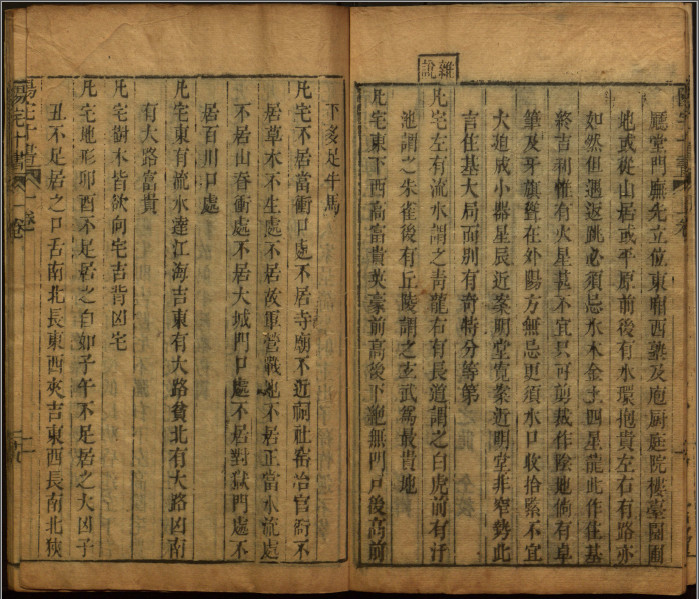 廳堂門廡先立位東廂西塾及庖厨庭院樓臺園圃
地或從山居或平原前後有水環抱貴左右有路亦
如然但遇返跳必須忌水木金土四星龍此作住基
終吉利惟有火星甚不宜只可剪裁作陰地倘有卓
筆及牙旗聳在外陽方無忌更須水口收拾緊不宜
大迫成小器星辰近案明堂寬案近明堂非窄勢此
言住基大局而別有奇特分等第
雜說
凡宅左有流水謂之青龍右有長道謂之白虎前有汙
池謂之朱雀後有丘陵謂之玄武爲最貴地
凡宅東下西高富貴英豪前高後下絶無門戶後高前
下多足牛馬
凡宅不居當衝口處不居寺廟不近祠社窑冶官衙不
居草木不生處不居故軍營戰地不居正當水流處
不居山脊衝處不居大城門口處不居對獄門處不
居百川口處
凡宅東有流水達江海吉東有大路貧北有大路凶南
有大路富貴
凡宅樹木皆欲向宅吉背凶宅
凡宅地形卯酉不足居之自如子午不足居之大凶子
丑不足居之口舌南北長東西夾吉東西長南北狹
陽宅十書
一卷